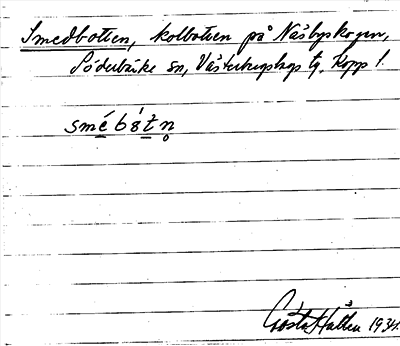 Smedbotten, kolbotten på Näsbyskogen,
Söderbärke sn, Västerbergslags tg. Kopp l.
smé bó̵tn̥
Gösta Hallén 1934.